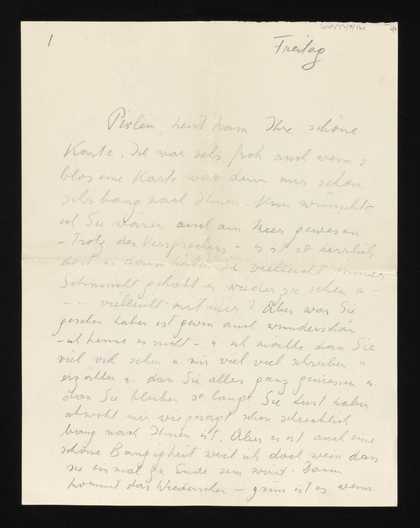 1
Freitag
heut kam Ihre schöne
Karte. Ich war sehr froh auch wenn's
blos eine Karte war denn mir schon
sehr bang nach Ihnen.
Sie wären auch am Meer gewesen
– Trotz des Versprechens – es ist so herrlich
dort u. dann hätten Sie vielleicht immer
Sehnsucht gehabt es wieder zu sehen u –
– – vielleicht mit mir? Aber was Sie
gesehen haben ist gewiss auch wunderschön
– ich kenne es nicht – u ich möchte dass Sie
viel viel sehen u mir viel viel schreiben u
erzählen u. dass Sie alles ganz geniessen u.
dass Sie bleiben so lange Sie Lust haben
obwohl mir wie gesagt schon schrecklich
bang nach Ihnen ist. Aber es ist auch eine
schöne Bangigkeit weil ich doch weiss dass
sie einmal zu Ende sein wird. Dann
kommt das Wiedersehen – ganz ist es wenn